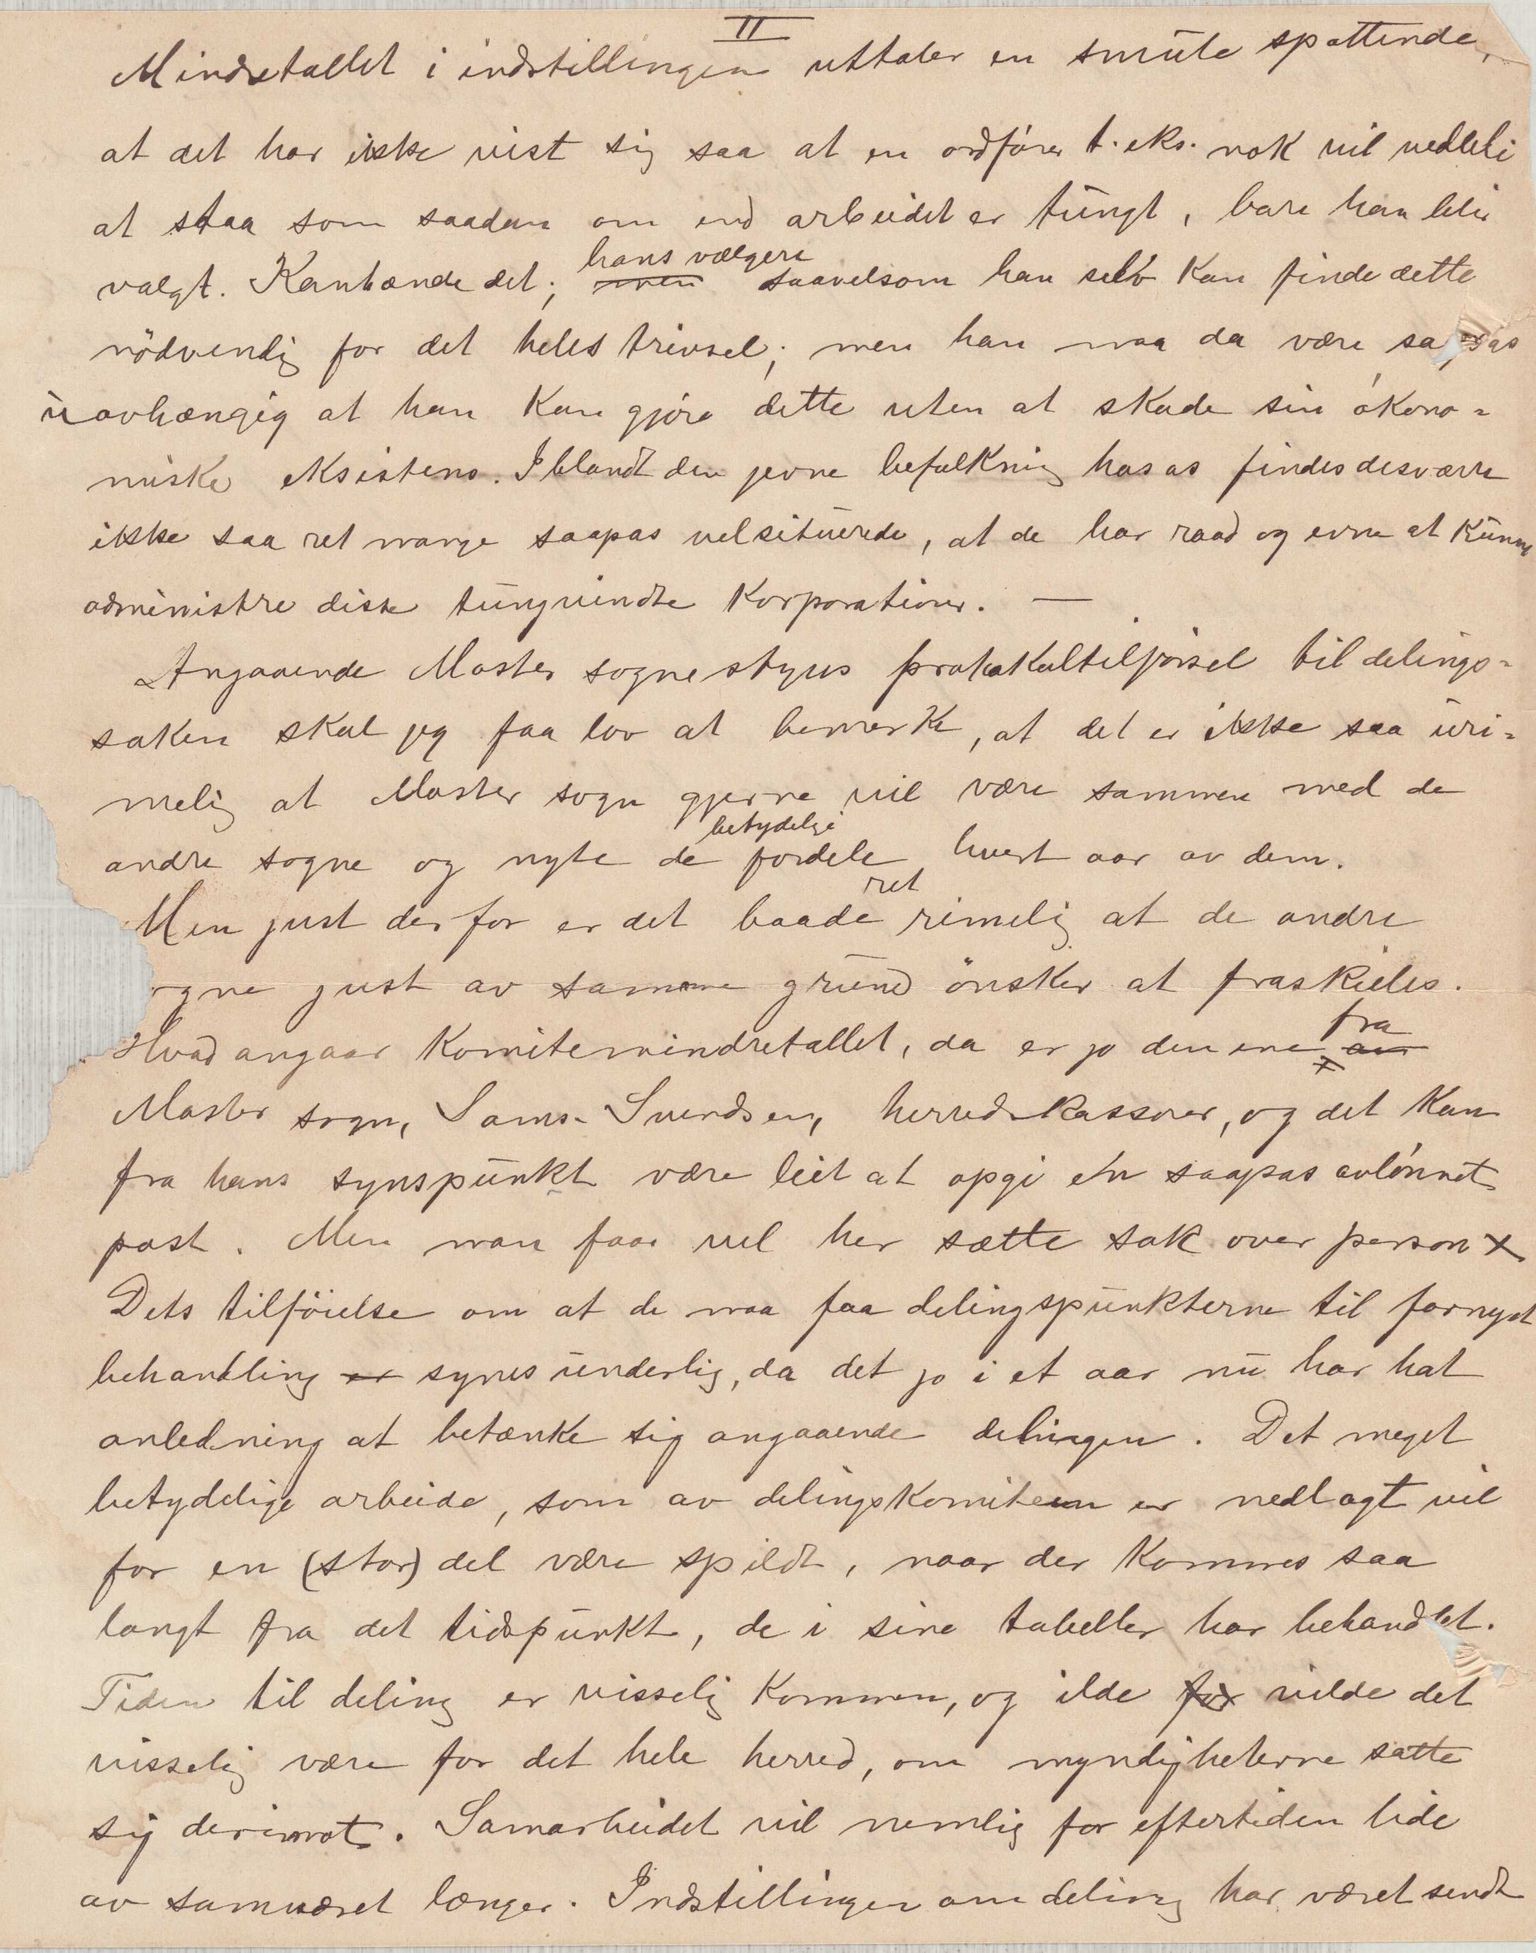 II
Mindretallet i indstillingen uttaler en smule spottende,
at det har ikke vist sig saa at en ordfører t. eks. nok vil vedbli
at staa som saadan om end arbeidet er tungt, bare han blir
valgt. Kanhænde det; men hans vælgere saavelsom han selv kan finde dette
nödvendig for det heles trivsel; men han maa da være saapas
uavhængig at han kan gjøre dette uten at skade sin økono-
miske eksistens. Iblandt den jevne befolkning hos os findes desværre
ikke saa ret mange saapas velsituerede, at de har raad og evne at kunne
administre disse tungvindte korporationer. —
Angaaende Moster sognestyres protokoltilførsel til delings-
saken skal jeg faa lov at bemerke, at det er ikke saa uri-
melig at Moster sogn gjerne vil være sammen med de
andre sogne og nyte de betydelige fordele hvert aar av dem.
Men just derfor er det baade ret rimelig at de andre
ogne just av samme grund önsker at fraskilles.
Hvad angaar komitemindretallet, da er jo den ene av fra
Moster sogn, Sams. Svendsen, herredskasserer, og det kan
fra hans synspunkt være leit at opgi en saapas avlønnet
post. Men man faar vel her sætte sak over person x
Dets tilföielse om at de maa faa delingspunkterne til fornyet
behandling er synes underlig, da det jo i et aar nu har hat
anledning at betænke sig angaaende delingen. Det meget
betydelige arbeide, som av delingskomiteen er nedlagt vil
for en (stor) del være spildt, naar der kommes saa
langt fra det tidspunkt, de i sine tabeller har behandlet.
Tiden til deling er visselig kommen, og ilde for vilde det
visselig være for det hele herred, om myndigheterne satte
sig derimot. Samarbeidet vil nemlig for eftertiden lide
av samværet længer. Indstillingen om deling har været sendt